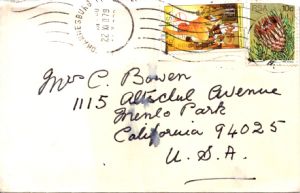 RSA 10c
22 XI 79
Mrs C. Bowen
1115 Altschul Avenue
Menlo Park
California 94025
U.S.A.